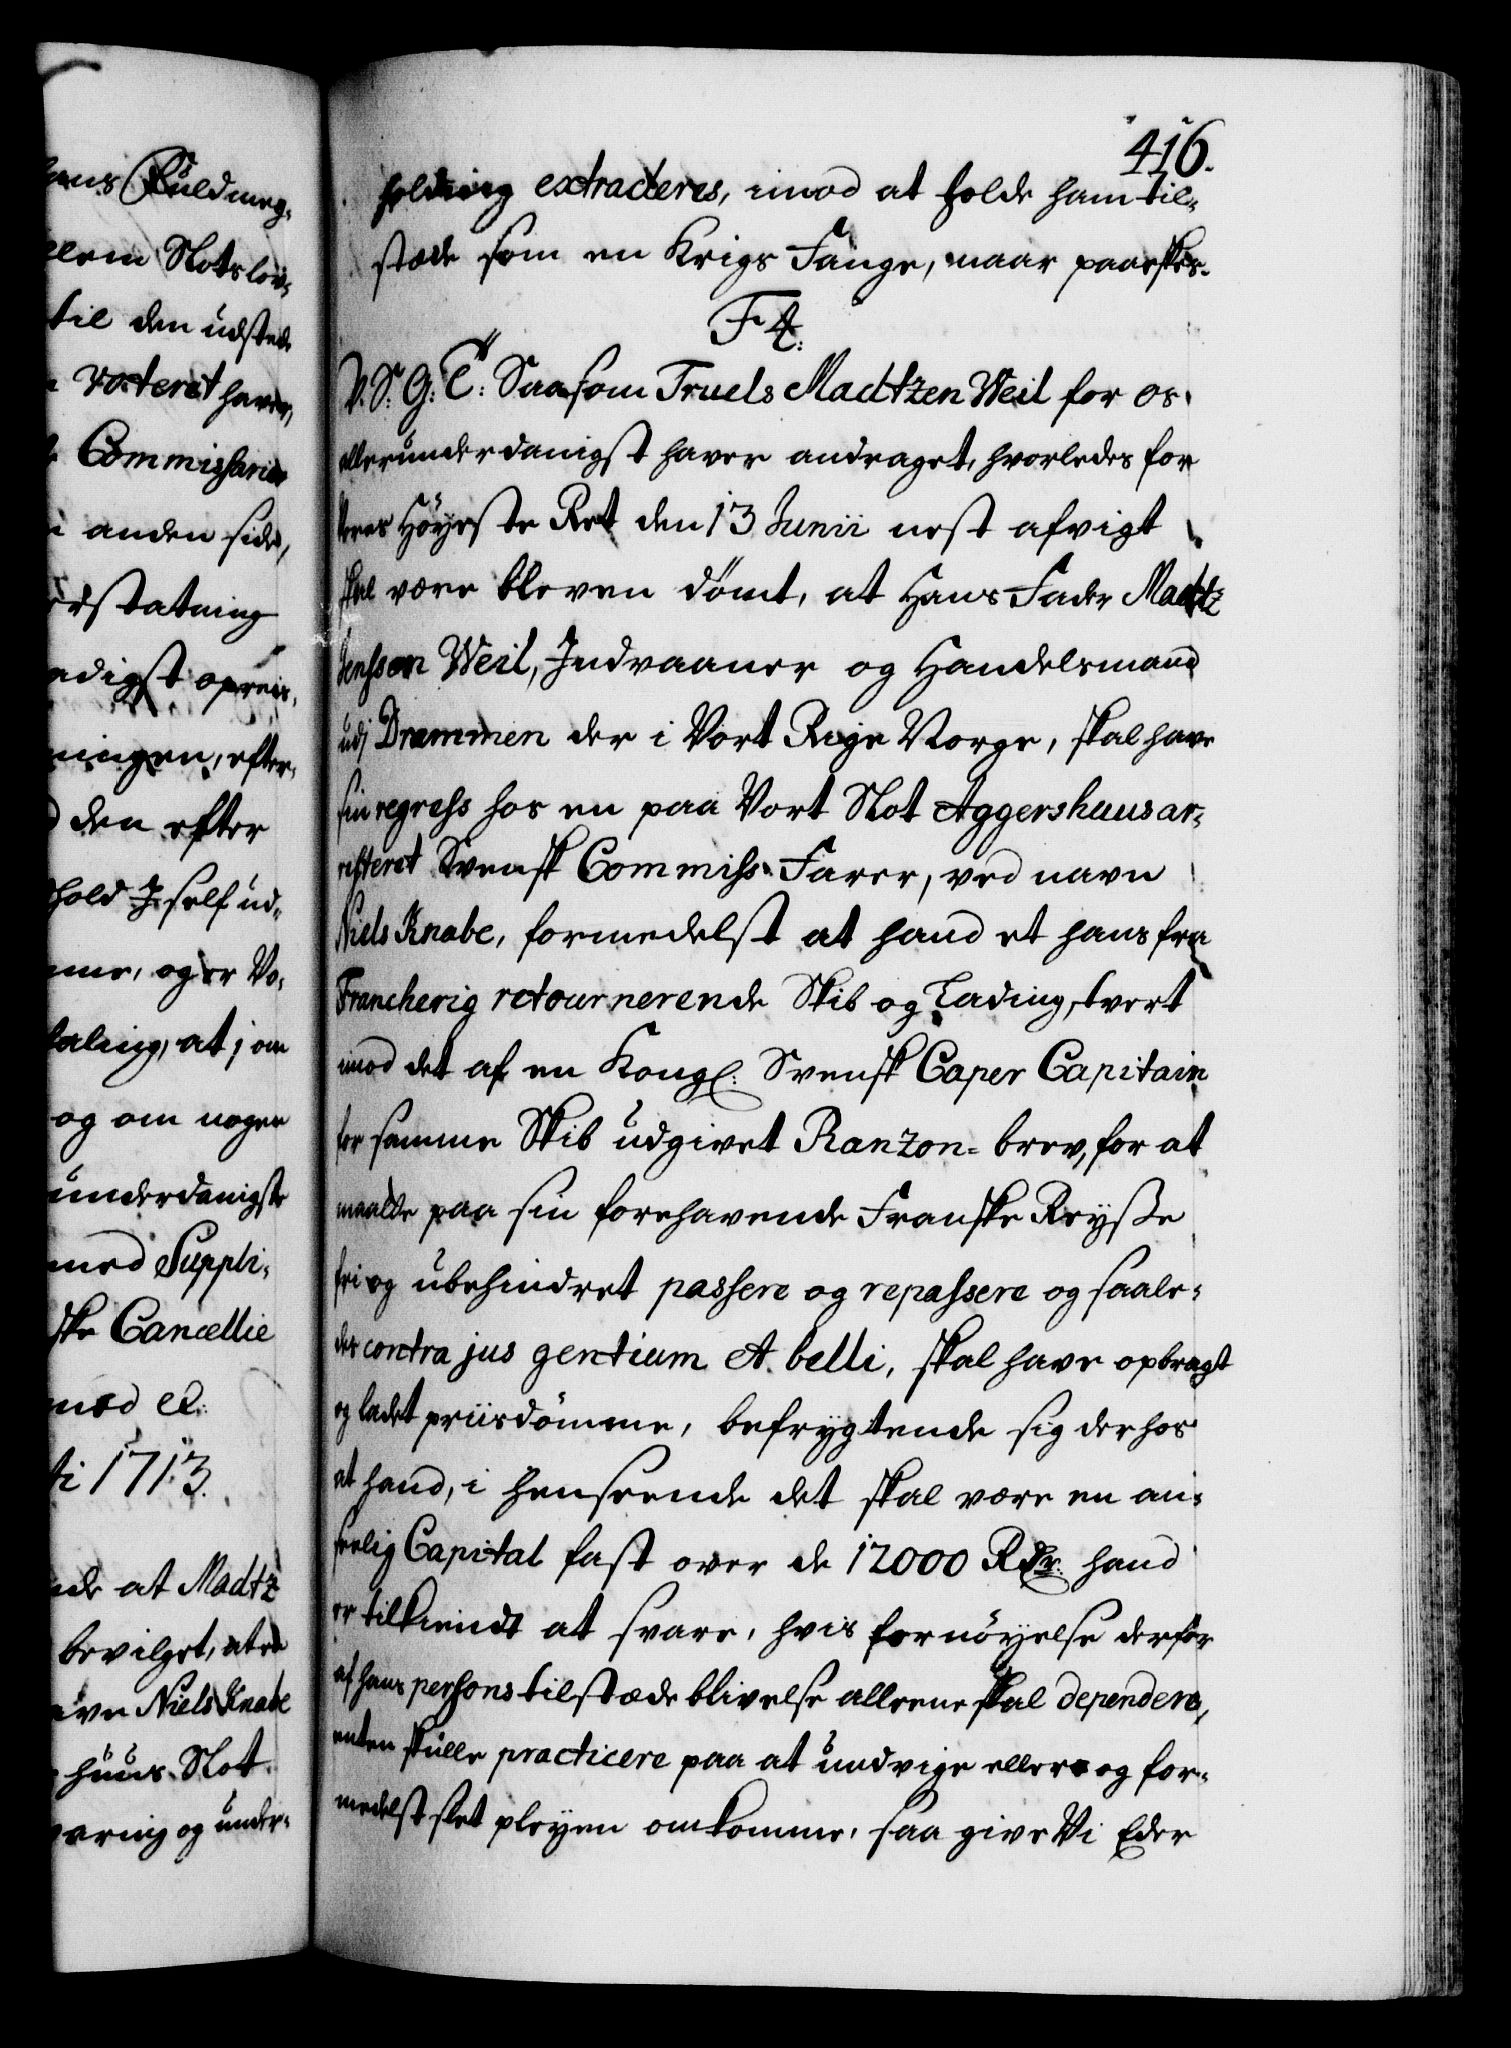 hans Fuldmeg-
Slotslov-
til den udsted
voteret haver,
Commissarier
i anden side,
erstatning
adigst opreis,
ningen, efter-
den efter
hold I self ud-
og er Vo-
taling, at j om
og om nogen
underdanigste
med Suppli-
ske Cancellie
med et:
ti 1713.
nde at Madtz
bevilget, at en
Niels Knabe
huus Slot
varing og under-
416.
holdning extraderes, imod at holde ham til-
stæde som en Krigs Fange, naar paaeskes.
F 4.
V. S. G. T: Saasom Truels Madtzen Weil for os
allerunderdanigst haver andraget, hvorledes for
vores Höyeste Ret den 13 Junii nest afvigt
skal være bleven dömt, at Hans Fader Madtz
Jenssen Weil, Indvaaner og Handelsmand
udj Drammen der i Vort Rige Norge, skal have
sin regress hos en paa Vort Slot Aggershuus ar-
resteret Svensk Commiss-Farer, ved navn
Niels Knabe, formedelst at hand et hans fra
Francherig retournerende Skib og Lading, tvert
imod det af en Kongl: Svensk Caper Capitain
for samme Skib udgivet Ranzon-brev, for at
maatte paa sin forehavende Franske Reyße
fri og ubehindret passere og repassere og saale-
des contra jus gentium et belli, skal have opbragt
og ladet priisdömme, befrygtende sig derhos
at hand, i henseende det skal være en an-
seelig Capital fast over de 12000 Rdr: hand
er tilkiendt at svare, hvis fornöyelse derfor
af hans persons tilstædeblivelse alleene skal dependere,
enten skulle practicere paa at undvige eller og for-
medelst slet pleyen omkomme, saa give Vi Eder